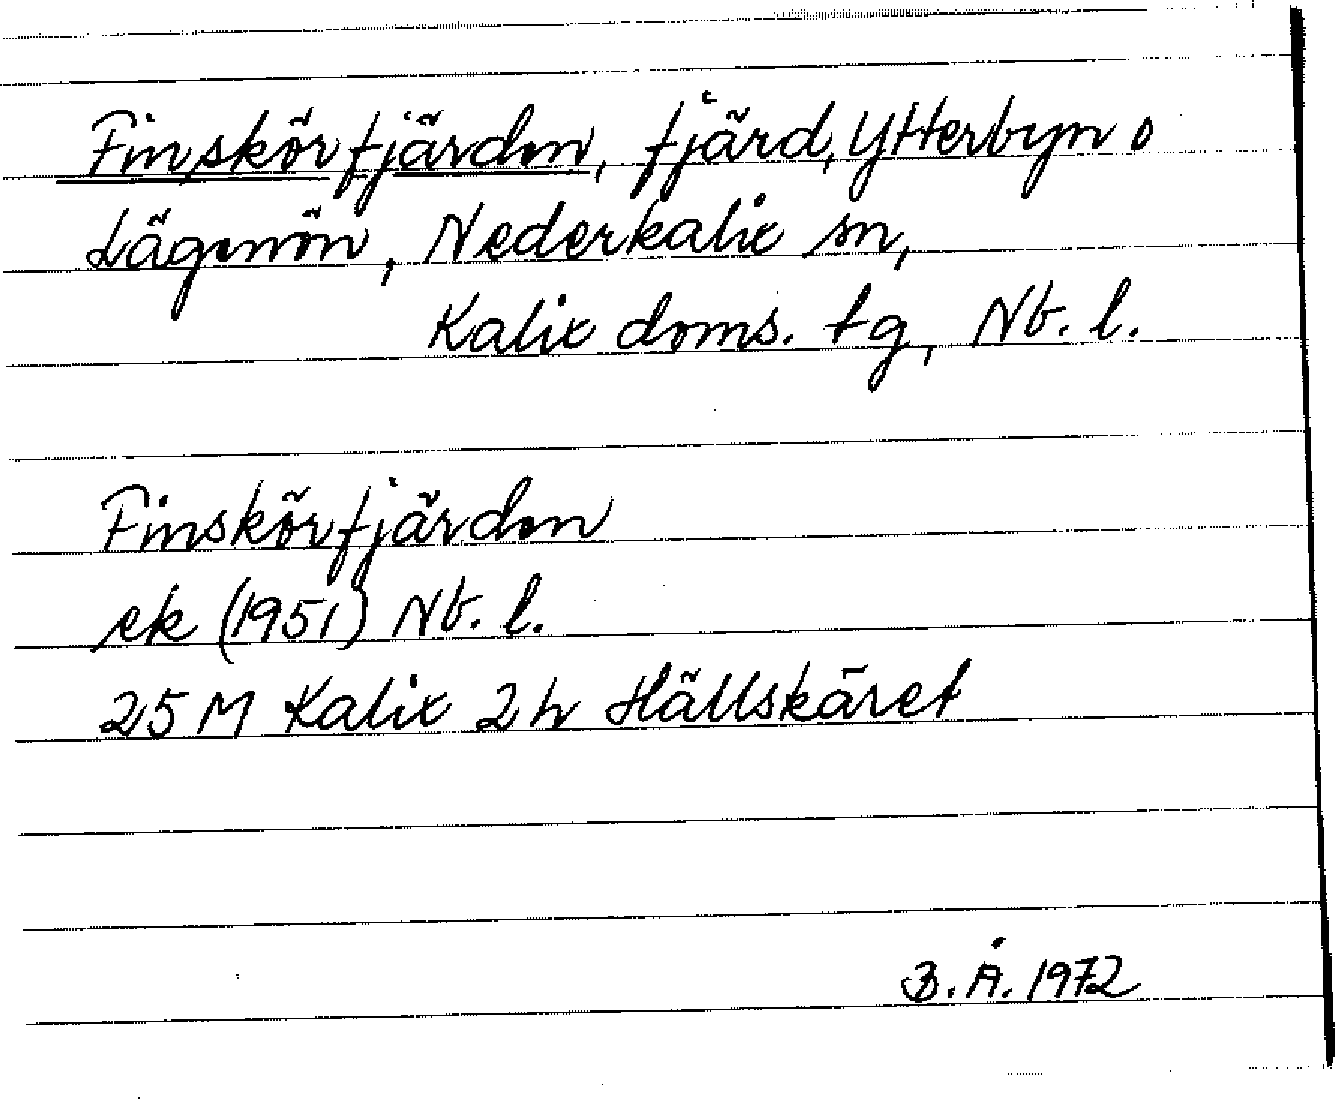 Finskörfjärden, fjärd, Ytterbyn o
Lägenön, Nederkalix sn,
Kalix doms. tg, Nb. l.
Finskörfjärden
ek (1951) Nb. l.
25 M Kalix 2 h Hällskäret
B. Å. 1972